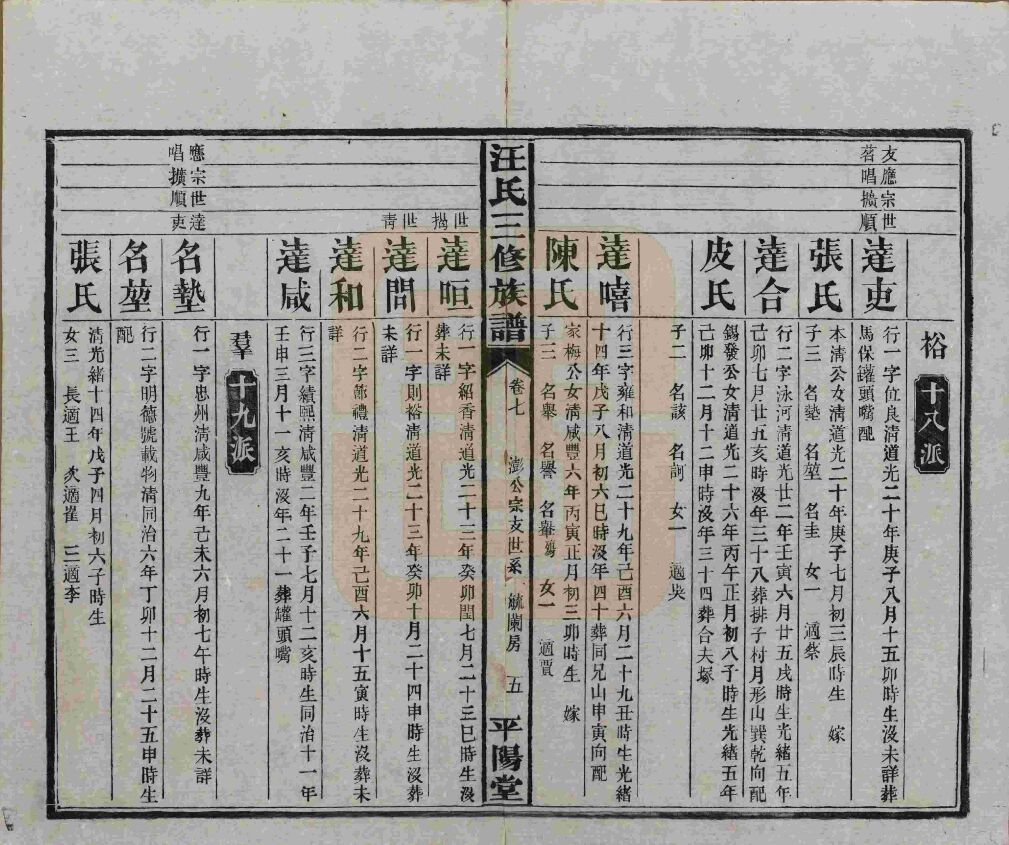 裕 十八派
友應宗世
茗唱擴順
達吏 行一字位良清道光二十年庚子八月十五卯時生沒未詳葬
馬保罐頭嘴配
張氏 本清公女清道光二十年庚子七月初三辰時生 嫁
子三 名墊 名堃 名圭 女一 適蔡
達合 行二字泳河清道光廿二年壬寅六月廿五戌時生光緒五年
己卯七月廿五亥時沒年三十八葬排子村月形山巽乾向配
皮氏 錫發公女清道光二十六年丙午正月初八子時生光緒五年
己卯十二月十二申時沒年三十四葬合夫塚
子二 名該 名訶 女一 適吳
達嘻 行三字雍和清道光二十九年己酉六月二十九丑時生光緒
十四年戊子八月初六巳時沒年四十葬同兄山申寅向配
陳氏 家梅公女清咸豐六年丙寅正月初三卯時生 嫁
子三 名舉 名譽 名轝殤 女一 適賈
汪氏三修族譜 卷七 澎公宗支世系 毓蘭房 五 平陽堂
世揭
達晅 行一字紹香清道光二十三年癸卯閏七月二十三巳時生沒
葬未詳
世靑
達問 行一字則裕清道光二十三年癸卯十月二十四申時生沒葬
未詳
達和 行二字節禮清道光二十九年己酉六月十五寅時生沒葬未
詳
達咸 行三字績熙清咸豐二年壬子七月十二亥時生同治十一年
壬申三月十一亥時沒年二十一葬罐頭嘴
羣 十九派
應宗世達
唱擴順吏
名墊 行一字忠州清咸豐九年己未六月初七午時生沒葬未詳
名堃 行二字明德號載物清同治六年丁卯十二月二十五申時生
配
張氏 清光緒十四年戊子四月初六子時生
女三 長適王 次適崔 三適李